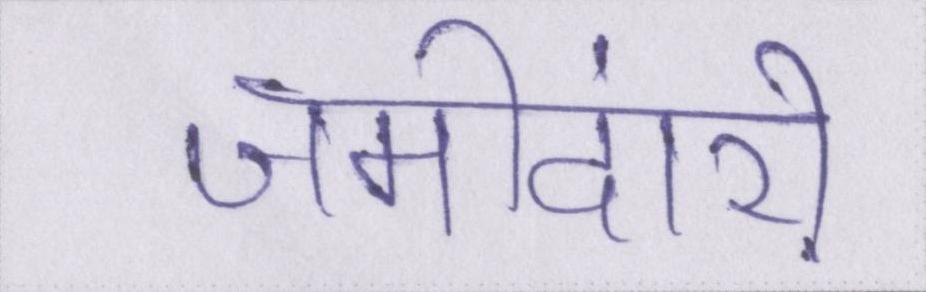 जमीदांरी